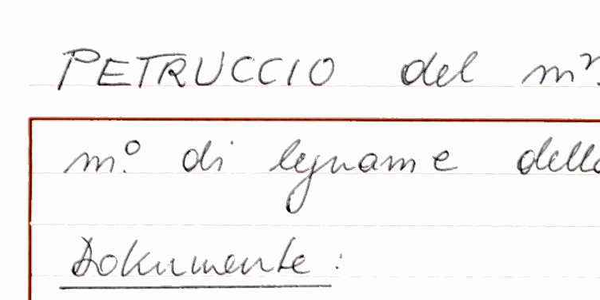 PETRUCCIO del m
m.º di legname dell
Dokumente: